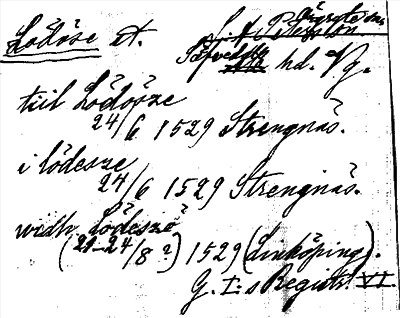 Lödöse st.
Säfvedals hd. Vg.
tiil Lödösze
24/6 1529 Strengnäs.
i lödesze
24/6 1529 Strengnäs.
widh Lödeszö
(21-24/8?) 1529 (Linköping).
G. I:s Registr. VI.